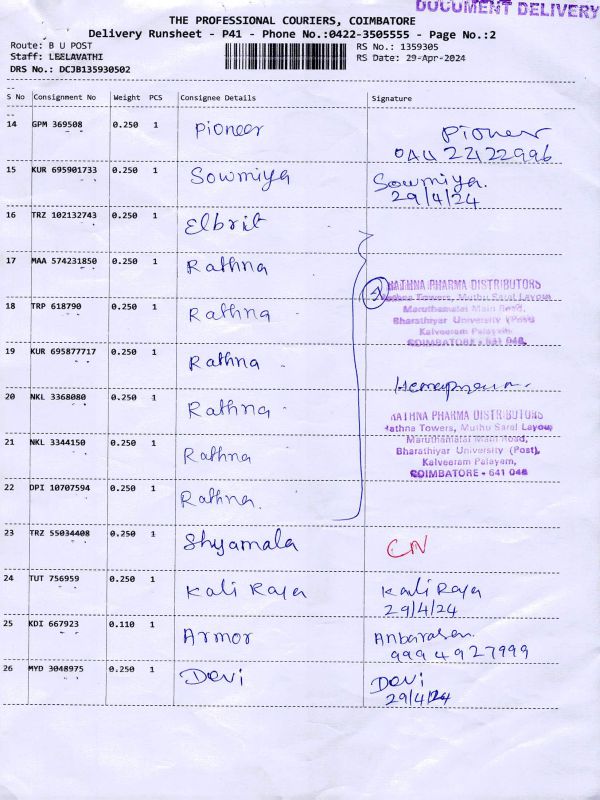 DOCUMENT DELIVERY
THE PROFESSIONAL COURIERS, COIMBATORE
Delivery Runsheet - P41 - Phone No.:0422-3505555 - Page No.:2
Route: B U POST
RS No.: 1359305
Staff: LEELAVATHI
RS Date: 29-Apr-2024
DRS No.: DCJB135930502
S No Consignment No Weight PCS Consignee Details Signature
14 GPM 369508 0.250 1 Pioneer Pioneer
22122996
15 KUR 695901733 0.250 1 Sowmiya Sowmiya.
29/4/24
16 TRZ 102132743 0.250 1 Elbrit
17 MAA 574231850 0.250 1 Rathna
RATHNA PHARMA DISTRIBUTORS
Rathna Towers, Muthu Saral Layout
Maruthamalai Main Road,
Bharathiyar University (Post)
Kalveeram Palayam,
COIMBATORE - 641 046
18 TRP 618790 0.250 1 Rathna
19 KUR 695877717 0.250 1 Rathna
20 NKL 3368080 0.250 1 Rathna
RATHNA PHARMA DISTRIBUTORS
Rathna Towers, Muthu Saral Layout
Maruthamalai Main Road,
Bharathiyar University (Post),
Kalveeram Palayam,
COIMBATORE - 641 046
21 NKL 3344150 0.250 1 Rathna
22 DPI 10707594 0.250 1 Rathna.
23 TRZ 55034408 0.250 1 Shyamala CN
24 TUT 756959 0.250 1 Kali Raja Kali Raja
29/4/24
25 KDI 667923 0.110 1 Armor Anbarasan.
9994927999
26 MYD 3048975 0.250 1 Devi Devi
29/4/24